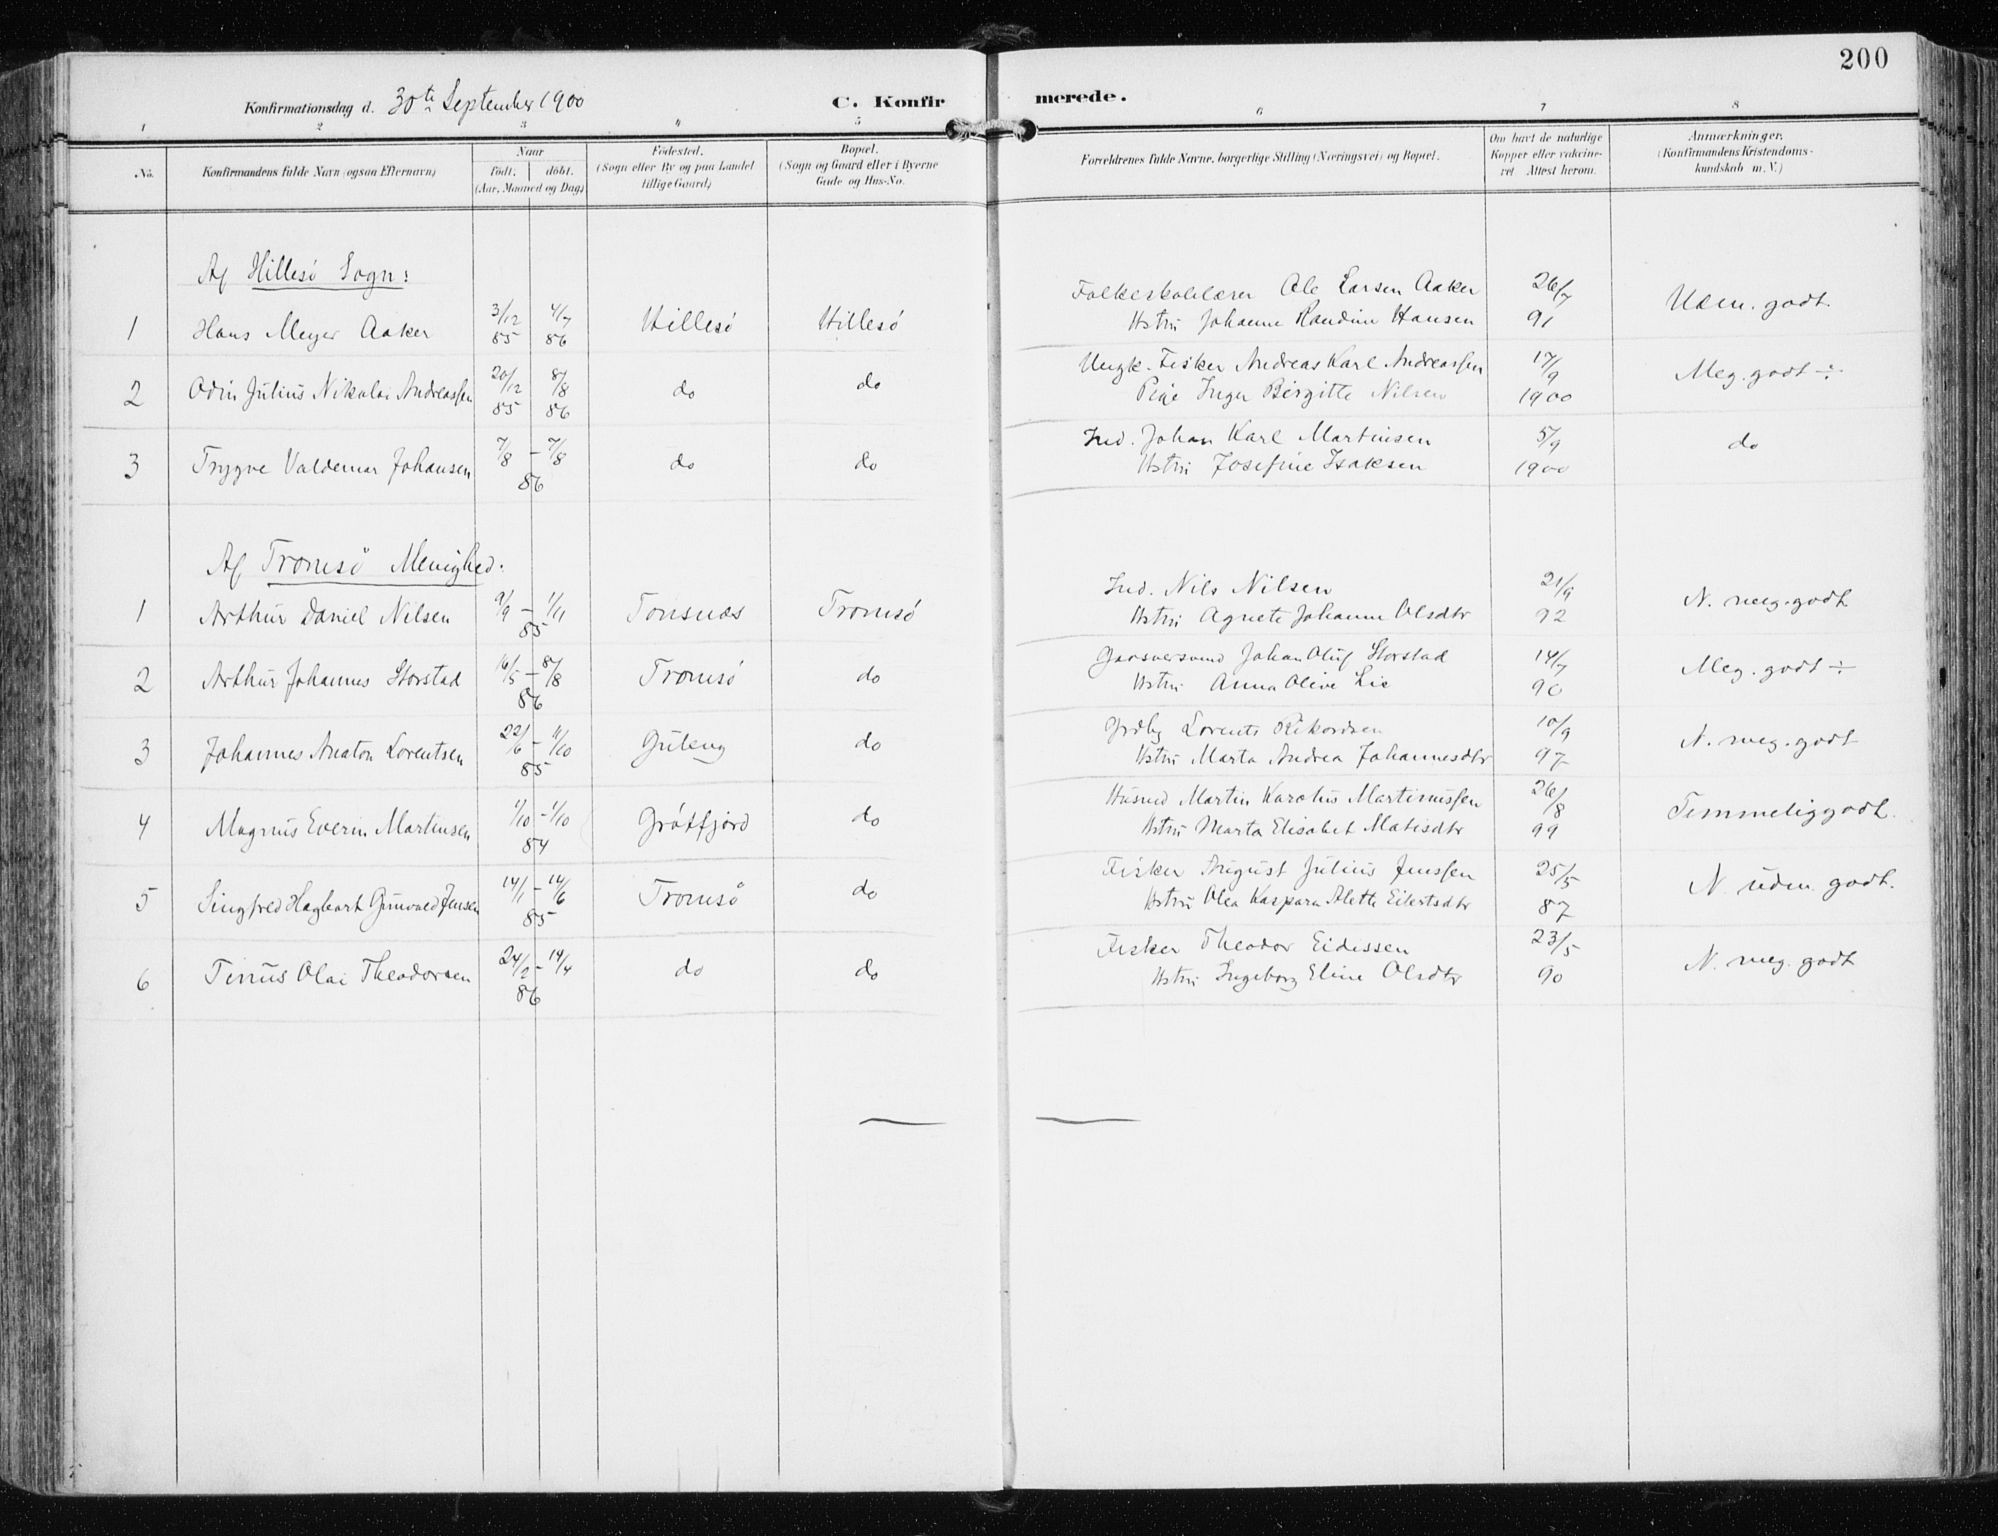 200
Konfirmationsdag d. 30te September 1900
C. Konfirmerede.
1 2 3 4 5 6 7 8
No.
Konfirmandens fulde Navn (ogsaa Efternavn)
Naar
født. døbt.
(Aar, Maaned og Dag)
Fødested.
(Sogn eller By og paa Landet
tillige Gaard)
Bopæl.
(Sogn og Gaard eller i Byerne
Gade og Hus-No.
Forældrenes fulde Navne, borgerlige Stilling (Næringsvei) og Bopæl.
Om havt de naturlige
Kopper eller vakcine-
ret Attest herom.
Anmærkninger.
(Konfirmandens Kristendoms-
kundskab m. V.)
Af Hillesö Sogn:
1 Hans Meyer Aaker 3/12 85 4/7 86 Hillesö Hillesö Folkeskolelærer Ole Larsen Aaker
Hstru Johanne Randine Hansen 26/7 91 Udm. godt.
2 Odin Julius Nikolai Andreassen 20/12 85 8/8 86 do do Ungk. Fisker Andreas Karl Andreassen
Pige Inger Birgitte Nilsen 17/9 1900 Meg. godt ÷
3 Trygve Valdemar Johansen 7/8 - 7/8 86 do do Ind. Johan Karl Martinsen
Hstru Josefine Isaksen 5/9 1900 do
Af Tromsö Menighed.
1 Arthur Daniel Nilsen 9/9 - 1/11 85 Tonsnæs Tromsö Ind. Nils Nilsen
Hstru Agnete Johanne Olsdtr 21/9 92 N. meg. godt
2 Arthur Johannes Storstad 16/5 - 8/8 86 Tromsö do Johan Oluf Storstad
Hstru Anna Olive Lie 14/7 90 Meg. godt ÷
3 Johannes Anaton Lorentsen 22/6 - 11/10 85 do Grdbg Lorents Rikordsen
Hstru Marta Andrea Johannesdtr 10/9 97 N. meg. godt
4 Magnus Everin Martinsen 1/10 - 1/10 84 Grötfjord do Husmd Martin Karolius Martinussen
Hstru Marta Elisabet Matisdtr 26/8 99 Temmelig godt.
5 Singfred Hagbart Gunvald Jensen 14/1 - 14/6 85 Tromsö do Fisker August Julius Jenssen
Hstru Olea Kaspara Alette Eilertsdtr 25/5 87 N. udm. godt.
6 Tinus Olai Theodorsen 24/2 - 14/4 86 do do Fisker Theodor Eidissen
Hstru Ingeborg Eline Olsdtr 23/5 90 N. meg. godt